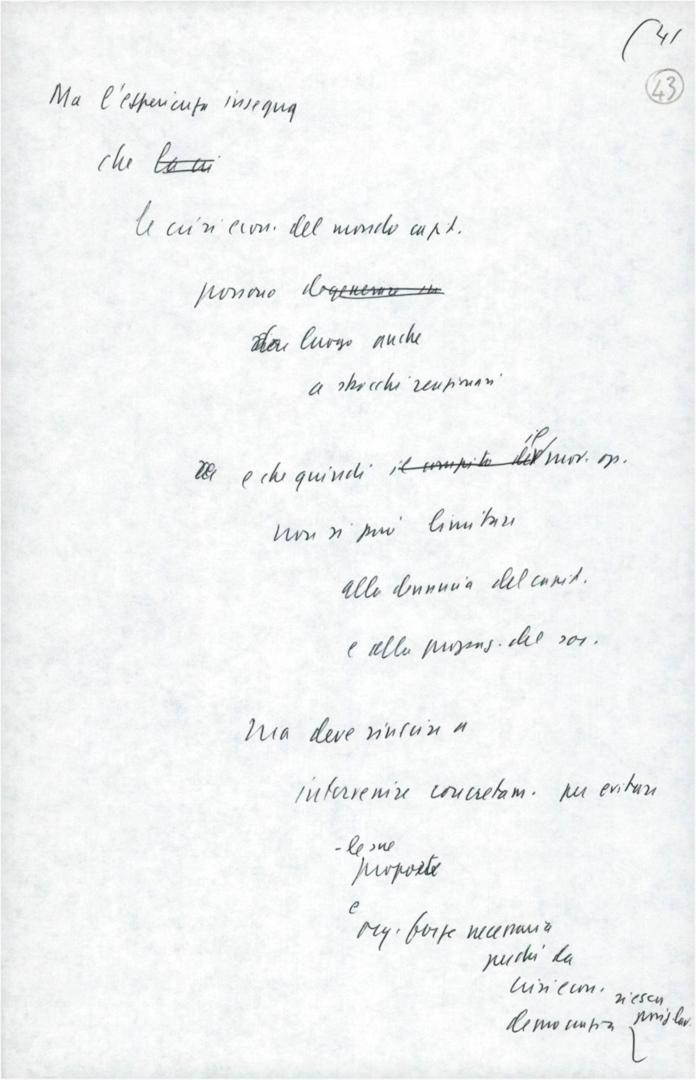 41
43
Ma l'esperienza insegna
che la cri
le crisi econ. del mondo capit.
possono degenerare in
dare luogo anche
a sbocchi reazionari
e che quindi il compito del il mov. op.
non si può limitare
alla denuncia del capit.
e alla propag. del soc.
Ma deve riuscire a
intervenire concretam. per evitare
- le sue
proposte
e
org. forze necessaria
perché da
crisi econ.
democrazia riesca